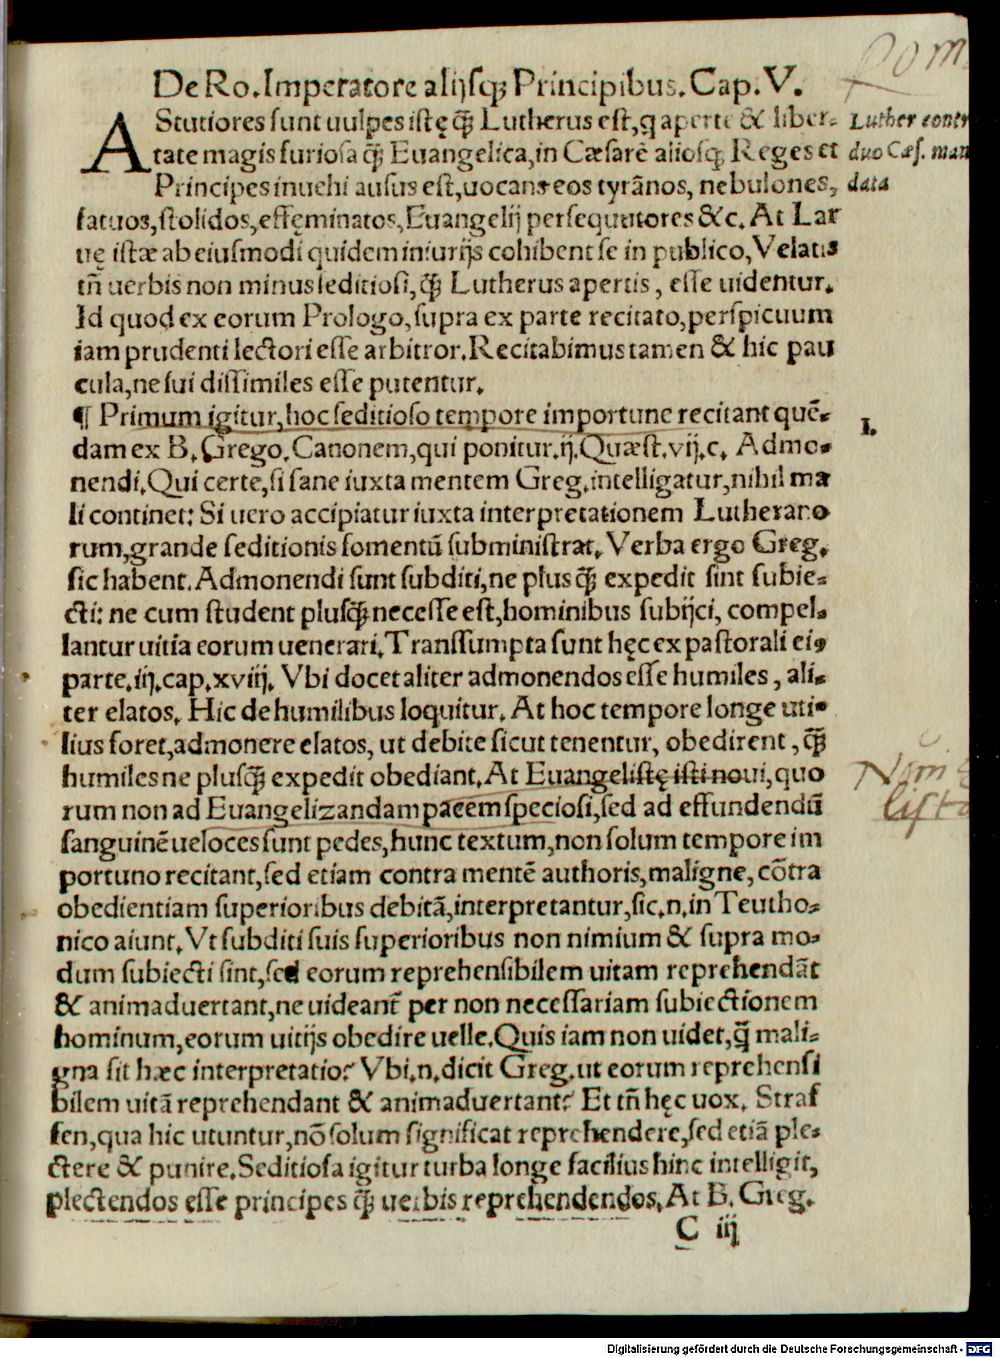 De Ro. Imperatore alijsq; Principibus. Cap. V.
AStutiores sunt uulpes istę q̃ Lutherus est, q aperte & liber-
tate magis furiosa q̃ Euangelica, in Cæsarē aliosq; Reges et
Principes inuehi ausus est, uocans eos tyrãnos, nebulones,
fatuos, stolidos, effęminatos, Euangelij persequutores &c. At Lar
uę istæ ab eiusmodi quidem iniurijs cohibent se in publico, Velatis
tñ uerbis non minus seditiosi, q̃ Lutherus apertis, esse uidentur.
Id quod ex eorum Prologo, supra ex parte recitato, perspicuum
iam prudenti lectori esse arbitror. Recitabimus tamen & hic pau
cula, ne sui dissimiles esse putentur.
¶ Primum igitur, hoc seditioso tempore importune recitant quē-
dam ex B. Grego. Canonem, qui ponitur. ij. Quæst. vij. c. Admo-
nendi. Qui certe, si sane iuxta mentem Greg. intelligatur, nihil ma
li continet: Si uero accipiatur iuxta interpretationem Lutherano
rum, grande seditionis fomentū subministrat. Verba ergo Greg.
sic habent. Admonendi sunt subditi, ne plus q̃ expedit sint subie-
cti: ne cum student plusq̃ necesse est, hominibus subijci, compel-
lantur uitia eorum uenerari. Transsumpta sunt hęc ex pastorali ei9
parte. iij. cap. xviij. Vbi docet aliter admonendos esse humiles, ali-
ter elatos. Hic de humilibus loquitur. At hoc tempore longe uti-
lius foret, admonere elatos, ut debite sicut tenentur, obedirent, q̃
humiles ne plusq̃ expedit obediant. At Euangelistę isti noui, quo
rum non ad Euangelizandam pacem speciosi, sed ad effundendū
sanguinē ueloces sunt pedes, hunc textum, non solum tempore im
portuno recitant, sed etiam contra mentē authoris, maligne, cōtra
obedientiam superioribus debitã, interpretantur, sic. n. in Teutho-
nico aiunt. Vt subditi suis superioribus non nimium & supra mo-
dum subiecti sint, sed eorum reprehensibilem uitam reprehendãt
& animaduertant, ne uideant̃ per non necessariam subiectionem
hominum, eorum uitijs obedire uelle. Quis iam non uidet, q̃ mali-
gna sit hæc interpretatio? Vbi. n. dicit Greg. ut eorum reprehensi
bilem uitã reprehendant & animaduertant? Et tñ hęc uox. Straf
fen, qua hic utuntur, nō solum significat reprehendere, sed etiã ple-
ctere & punire. Seditiosa igitur turba longe facilius hinc intelligit,
plectendos esse principes q̃ uerbis reprehendendos. At B. Greg.
C iij
Luther contr
duo Cæs. man
data
I.
Digitalisierung gefördert durch die Deutsche Forschungsgemeinschaft - DFG